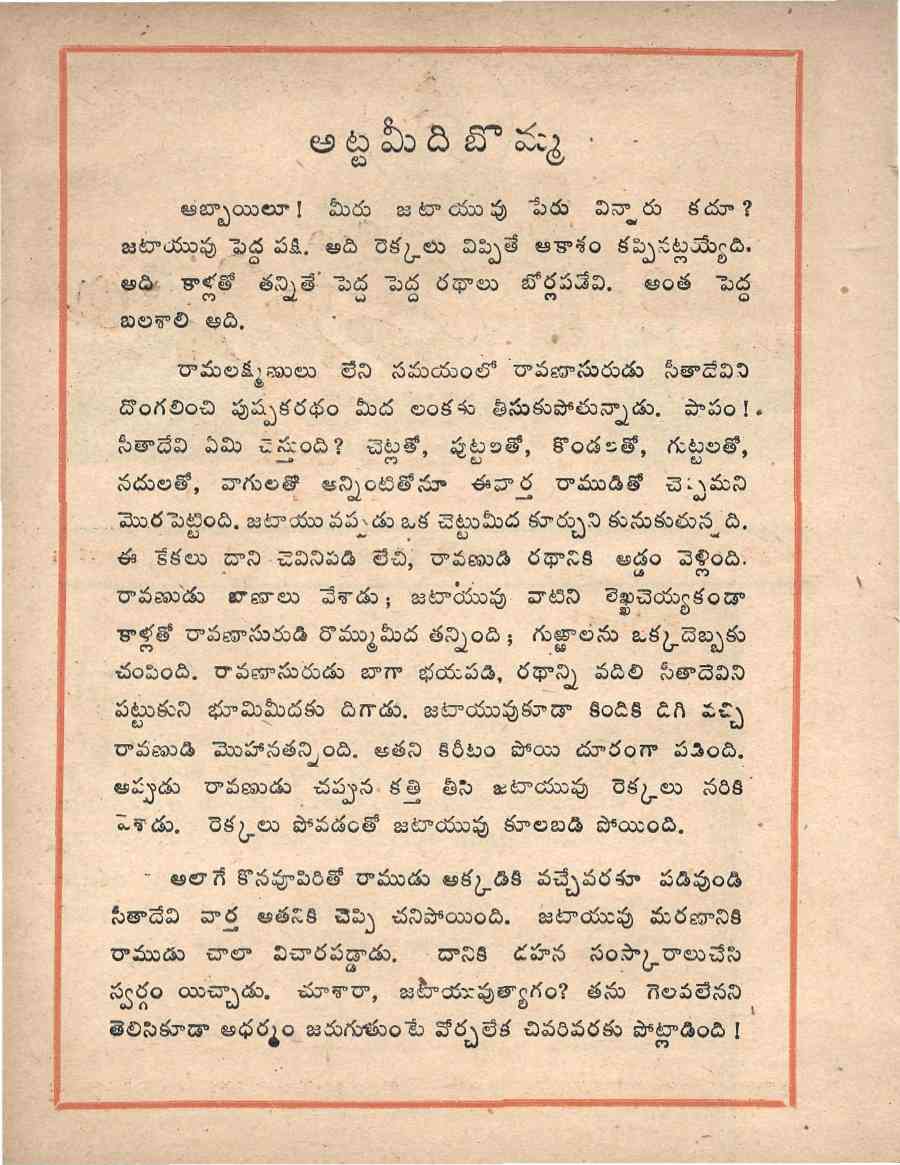 అట్టమీదిబొమ్మ
అబ్బాయిలూ! మీరు జటాయువు పేరు విన్నారు కదూ?
జటాయువు పెద్ద పక్షి. అది రెక్కలు విప్పితే ఆకాశం కప్పినట్లయ్యేది.
అది కాళ్లతో తన్నితే పెద్ద పెద్ద రథాలు బోర్లపడేవి. అంత పెద్ద
బలశాలి అది.
రామలక్ష్మణులు లేని సమయంలో రావణాసురుడు సీతాదేవిని
దొంగలించి పుష్పకరథం మీద లంకకు తీసుకుపోతున్నాడు. పాపం!
సీతాదేవి ఏమి చేస్తుంది? చెట్లతో, పుట్టలతో, కొండలతో, గుట్టలతో,
నదులతో, వాగులతో అన్నింటితోనూ ఈవార్త రాముడితో చెప్పమని
మొరపెట్టింది. జటాయువప్పుడు ఒక చెట్టుమీద కూర్చుని కునుకుతున్నది.
ఈ కేకలు దాని చెవినిపడి లేచి, రావణుడి రథానికి అడ్డం వెళ్లింది.
రావణుడు బాణాలు వేశాడు; జటాయువు వాటిని లెఖ్ఖచెయ్యకండా
కాళ్లతో రావణాసురుడి రొమ్ముమీద తన్నింది; గుఱ్ఱాలను ఒక్కదెబ్బకు
చంపింది. రావణాసురుడు బాగా భయపడి, రథాన్ని వదిలి సీతాదేవిని
పట్టుకుని భూమిమీదకు దిగాడు. జటాయువుకూడా కిందికి దిగి వచ్చి
రావణుడి మొహానతన్నింది. అతని కిరీటం పోయి దూరంగా పడింది.
అప్పుడు రావణుడు చప్పున కత్తి తీసి జటాయువు రెక్కలు నరికి
వేశాడు. రెక్కలు పోవడంతో జటాయువు కూలబడి పోయింది.
అలాగే కొనవూపిరితో రాముడు అక్కడికి వచ్చేవరకూ పడివుండి
సీతాదేవి వార్త అతనికి చెప్పి చనిపోయింది. జటాయువు మరణానికి
రాముడు చాలా విచారపడ్డాడు. దానికి దహన సంస్కారాలుచేసి
స్వర్గం యిచ్చాడు. చూశారా, జటాయువుత్యాగం? తను గెలవలేనని
తెలిసికూడా అధర్మం జరుగుతుంటే వోర్చలేక చివరివరకు పోట్లాడింది!